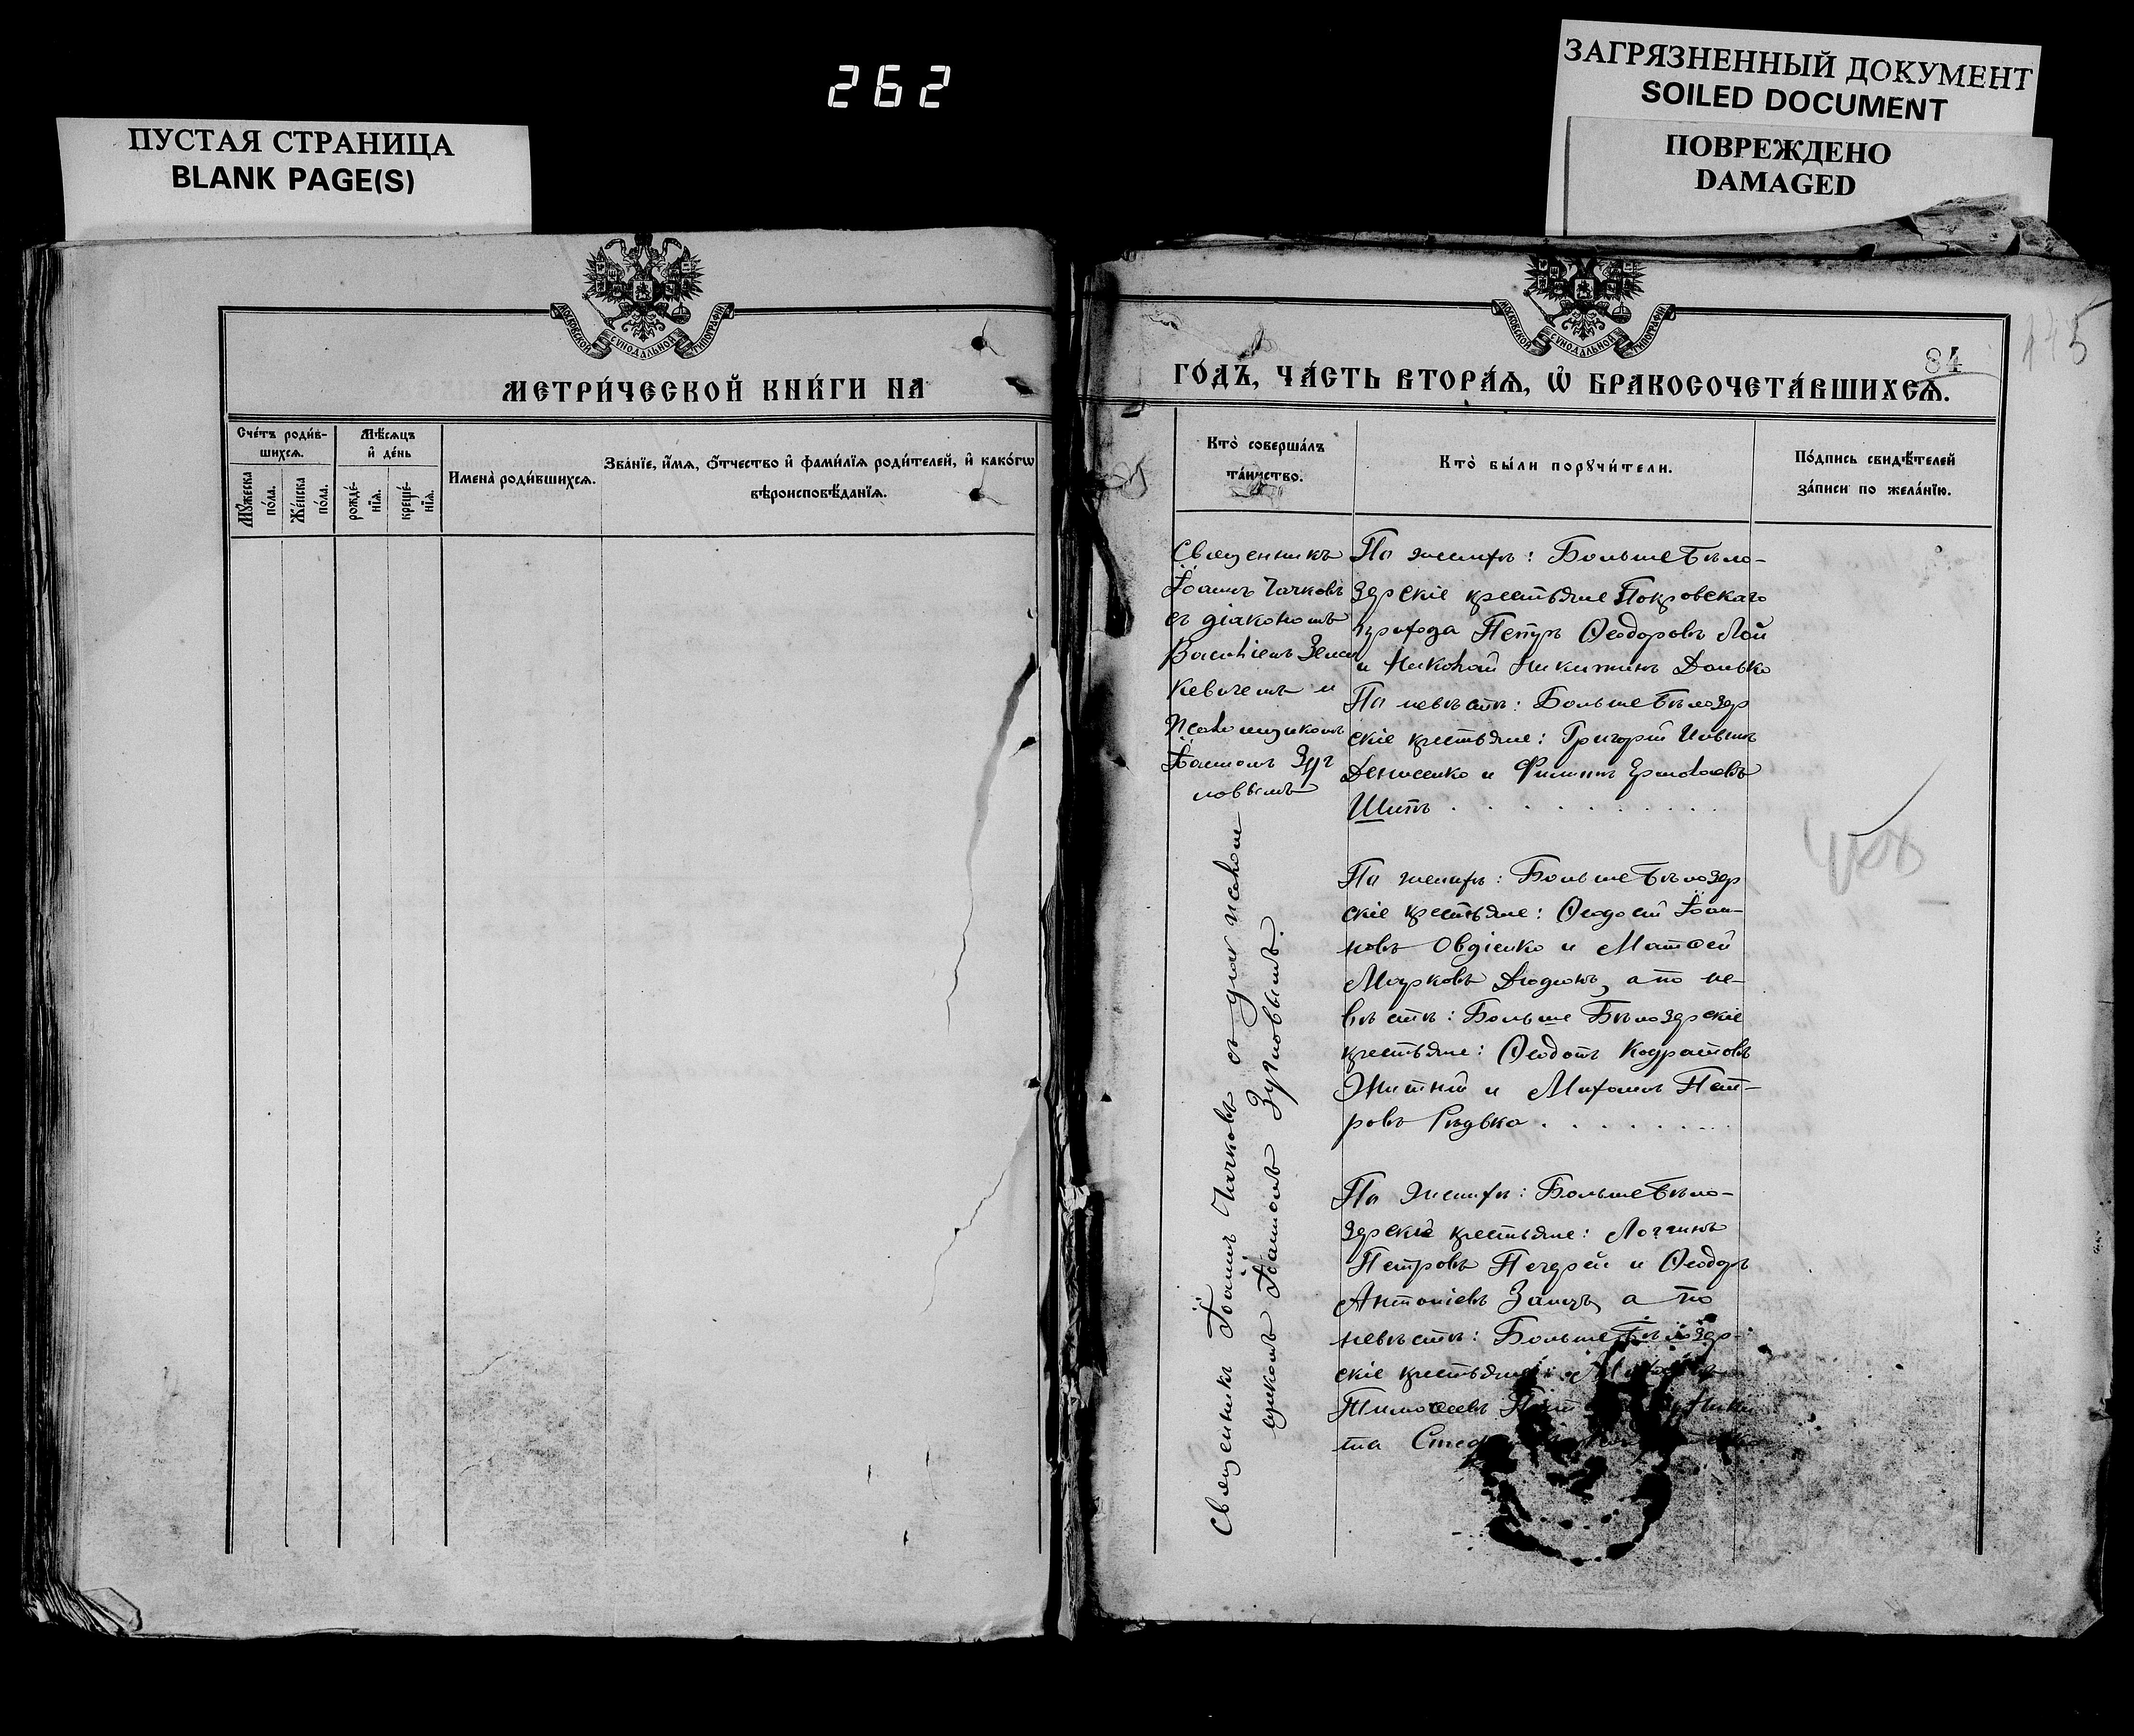 262
ПУСТАЯ СТРАНИЦА
BLANK PAGE(S)
ЗАГРЯЗНЕННЫЙ ДОКУМЕНТ
SOILED DOCUMENT
ПОВРЕЖДЕНО
DAMAGED
МОСКОВСКОЙ СѴНОДАЛЬНОЙ ТИПОГРАФІИ
МЕТРИ́ЧЕСКОЙ КНИ́ГИ НА
Сче́тъ роди́в-
шихсѧ.
Мѣ́сѧцъ
и҆ де́нь
Мꙋ́жеска
по́ла.
Же́нска
по́ла.
рожде́-
нїѧ.
креще́-
нїѧ.
Имена̀ роди́вшихсѧ.
Зва́нїе, и҆́мѧ, ѻ҆́тчество и҆ фами́лїѧ роди́телей, и҆ како́гѡ
вѣроисповѣ́данїѧ.
МОСКОВСКОЙ СѴНОДАЛЬНОЙ ТИПОГРАФІИ
84
115
ГО́ДЪ, ЧА́СТЬ ВТОРА́Ѧ, Ѡ҆ БРАКОСОЧЕТА́ВШИХСѦ.
Кто̀ соверша́лъ
та́инство.
Кто̀ бы́ли порꙋчи́тели.
По́дпись свидѣ́телей
за́писи по жела́нїю.
Священникъ
Іоаннъ Чачковъ
съ діакономъ
Василіемъ
кевичемъ и
псаломщикомъ
Іоанномъ Зуг
новымъ
По женихѣ: Больше Бѣло-
зерскіе крестьяне Покровскаго
прихода Петръ Ѳеодоровъ Лой
и Николай Никитинъ Донько
По невѣстѣ: Больше Бѣлозер
скіе крестьяне: Григорій Ильинъ
Денисенко и Филиппъ Ермолаевъ
Шитъ
Священникъ Іоаннъ Чачковъ съ псалом
щикомъ Іоанномъ Зугновымъ.
По женихѣ: Больше Бѣлозер
скіе крестьяне: Ѳеодосій Іоан-
новъ Овдіенко и Матѳей
Марковъ Дюдюнъ, а по не-
вѣстѣ: Больше Бѣлозерскіе
крестьяне: Ѳеодотъ Кодратовъ
Житный и Михаилъ Пет-
ровъ Рѣдька
По женихѣ: Больше Бѣло-
зерскіе крестьяне: Логгинъ
Петровъ Печерей и Ѳеодоръ
Антоніевъ Заяцъ, а по
невѣстѣ: Больше Бѣлозер-
скіе крестьяне:
Тимоѳеевъ Ники
та